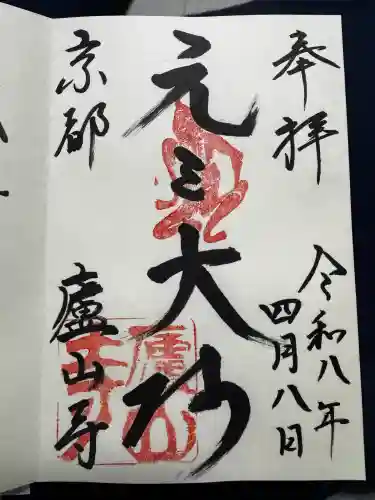 奉拝
令和八年
四月八日
元三大师
京都
廬山寺